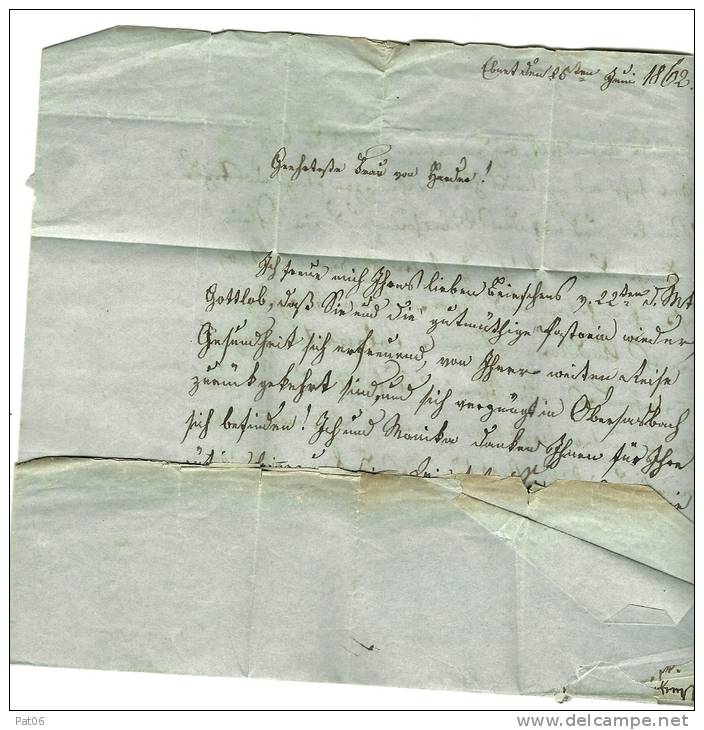 Ebnet den 28ten Juni 1862.
Geehrteste Frau von Herder!
Ich freue mich Ihres lieben Briefchens v. 22ten d. Mt
Gottlob, daß Sie und die gutmüthige Pastorin wieder,
Gesundheit sich erfreuend, von Ihrer weiten Reise
zurückgekehrt sind, und sich vergnügt in Obersasbach
sich befinden! Ich und Monika danken Ihnen für Ihre
Pat06
www.delcampe.net